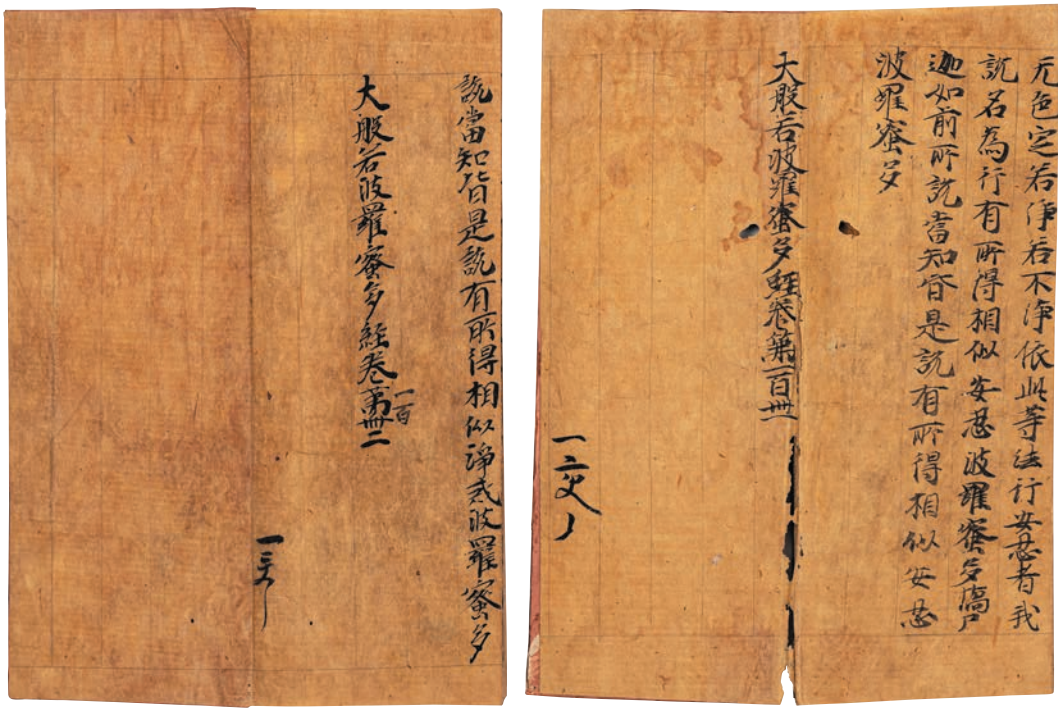 无色定若淨若不淨依此等法行安忍者我
說名為行有所得相似安忍波羅蜜多憍尸
迦如前所說當知皆是說有所得相似安忍
波羅蜜多
大般若波羅蜜多經卷第一百卌
說當知皆是說有所得相似淨戒波羅蜜多
大般若波羅蜜多經卷第一百卌二